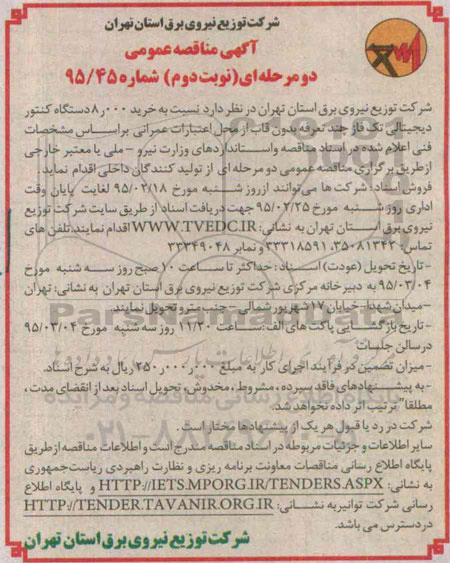 شرکت توزیع نیروی برق استان تهران
آگهی مناقصه عمومی
دو مرحله‌ای(نوبت دوم) شماره ۹۵/۴۵
شرکت توزیع نیروی برق استان تهران در نظر دارد نسبت به خرید ۸٫۰۰۰ دستگاه کنتور
دیجیتالی تک فاز چند تعرفه بدون قاب از محل اعتبارات عمرانی براساس مشخصات
فنی اعلام شده در اسناد مناقصه واستانداردهای وزارت نیرو – ملی یا معتبر خارجی
ازطریق برگزاری مناقصه عمومی دو مرحله ای از تولید کنندگان داخلی اقدام نماید.
فروش اسناد: شرکت ها می‌توانند ازروز شنبه مورخ ۹۵/۰۲/۱۸ لغایت پایان وقت
اداری روز شنبه مورخ ۹۵/۰۲/۲۵ جهت دریافت اسناد از طریق سایت شرکت توزیع
نیروی برق استان تهران به نشانی: WWW.TVEDC.IR اقدام نمایند.تلفن های
تماس: ۳۵۰۸۱۳۴۳، ۳۳۳۱۸۵۹۱ و نمابر ۳۳۳۴۹۰۴۸
-تاریخ تحویل (عودت) اسناد: حداکثر تا ساعت ۱۰ صبح روز سه شنبه مورخ
۹۵/۰۳/۰۴ به دبیرخانه مرکزی شرکت توزیع نیروی برق استان تهران به نشانی: تهران
–میدان شهدا–خیابان ۱۷ شهریور شمالی – جنب مترو تحویل نمایند.
-تاریخ بازگشایی پاکت های الف:ساعت ۱۱/۳۰ روز سه شنبه مورخ ۹۵/۰۳/۰۴
درسالن جلسات
-میزان تضمین در فرآیند اجرای کار به مبلغ ۲۵۰٫۰۰۰٫۲۰۰ ریال به شرح اسناد.
-به پیشنهادهای فاقد سپرده ، مشروط ، مخدوش، تحویل اسناد بعد از انقضای مدت ،
مطلقا" ترتیب اثر داده نخواهد شد.
شرکت در رد یا قبول هر یک از پیشنهادها مختار است .
سایر اطلاعات و جزئیات مربوطه در اسناد مناقصه مندرج است و اطلاعات مناقصه ازطریق
پایگاه اطلاع رسانی مناقصات معاونت برنامه ریزی و نظارت راهبردی ریاست‌جمهوری
به نشانی: HTTP://IETS.MPORG.IR/TENDERS.ASPX و پایگاه اطلاع
رسانی شرکت توانیربه نشانی: HTTP://TENDER.TAVANIR.ORG.IR
دردسترس می باشد.
شرکت توزیع نیروی برق استان تهران